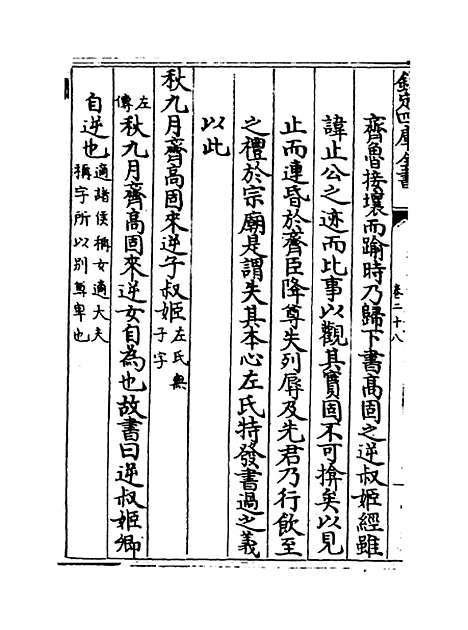 欽定四庫全書
卷二十八
齊魯接壤而踰時乃歸下書髙固之逆叔姬經雖
諱止公之迹而比事以觀其實固不可揜矣以見
止而連昏於齊臣降尊失列辱及先君乃行飲至
之禮於宗廟是謂失其本心左氏特發書過之義
以此
秋九月齊髙固來逆子叔姬左氏無子字
左傳秋九月齊髙固來逆女自為也故書曰逆叔姬卿
自逆也適諸侯稱女適大夫稱字所以别尊卑也